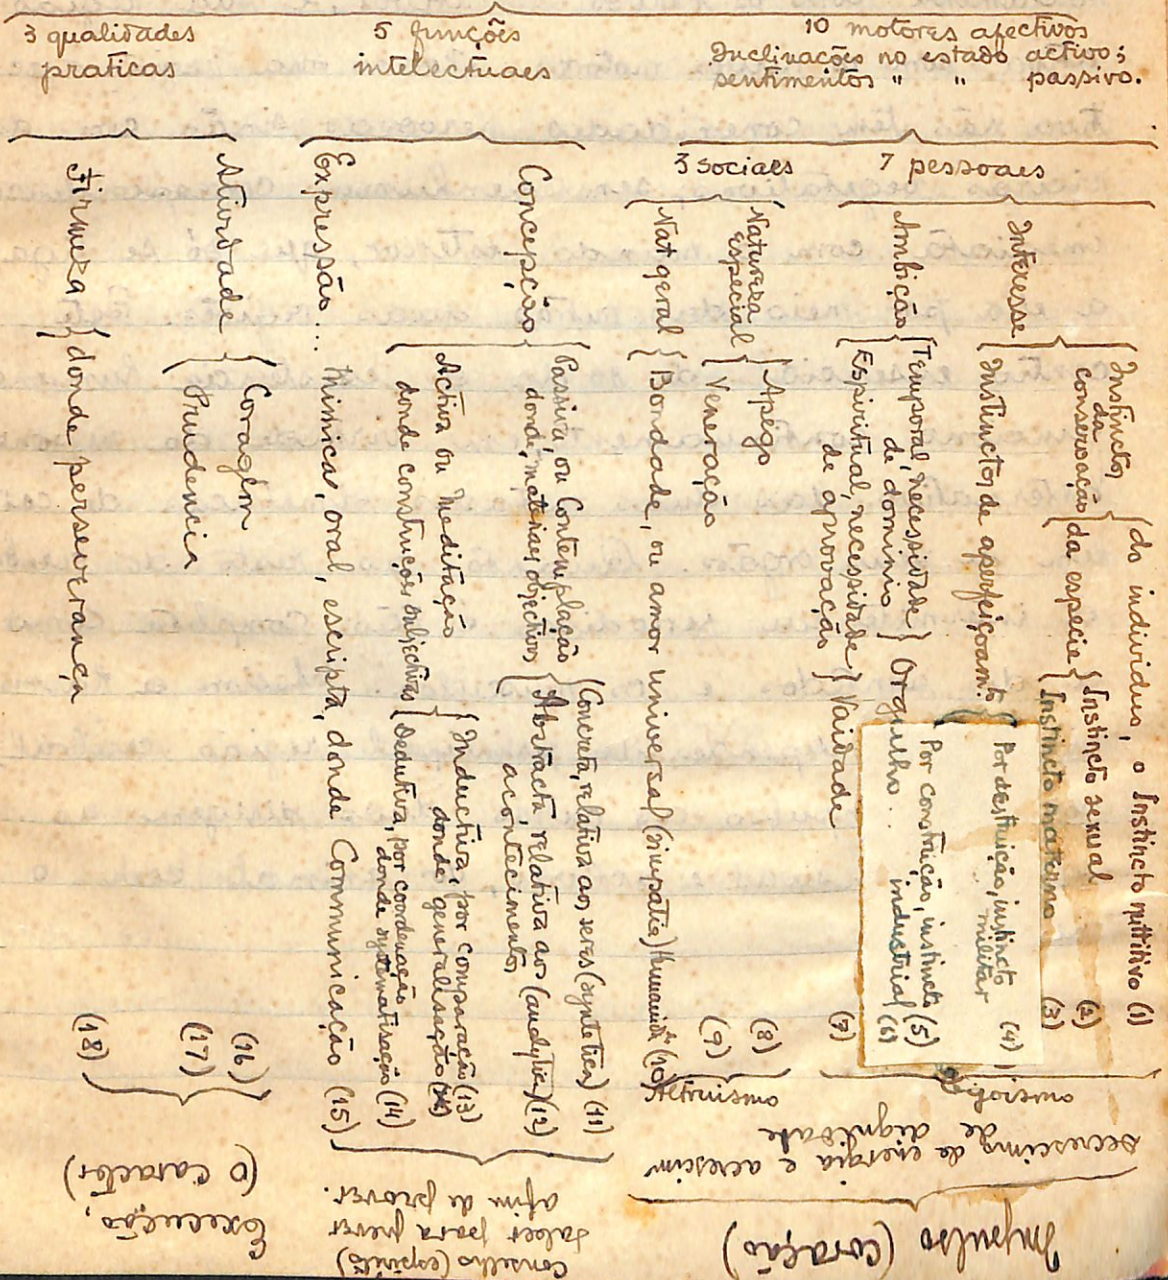 3 qualidades
praticas
5 funções
intelectuaes
10 motores afectivos
Inclinações no estado activo;
sentimentos " " passivo.
3 sociaes
7 pessoaes
Interesse
Instinctos
da
conservação
do individuo, o Instincto nutritivo (1)
da especie
Instincto sexual (2)
Instincto materno (3)
Instinctos de aperfeiçoamto
Por destruição, instincto
militar (4)
Por construção, instincto (5)
industrial
Ambição
Temporal, necessidade
de dominio
Orgulho... (6)
Espiritual, necessidade
de aprovação
Vaidade (7)
Natureza
especial
Apêgo (8)
Veneração (9)
Nat geral
Bondade, ou amor universal (simpatia) humanide (10)
Concepção
Passiva, ou Contemplação
donde, materiaes objectivos
Concreta, relativa aos seres (syntetica) (11)
Abstracta, relativa aos (analytica) (12)
acontecimentos
Activa ou Meditação
donde construções subjectivas
Inductiva, por comparação (13)
donde, generalisação
Dedutiva, por coordenação
donde systematisação (14)
Expressão...
Mimica, oral, escripta, donde Communicação (15)
Atividade
Coragem (16)
Prudencia (17)
Firmeza
donde perseverança (18)
egoismo
Altruismo
decrescimo de energia e acrescim
de dignidade
Impulso (coração)
Conselho (espirito)
saber para prever
afim de prover.
Execução,
(O Caracter)